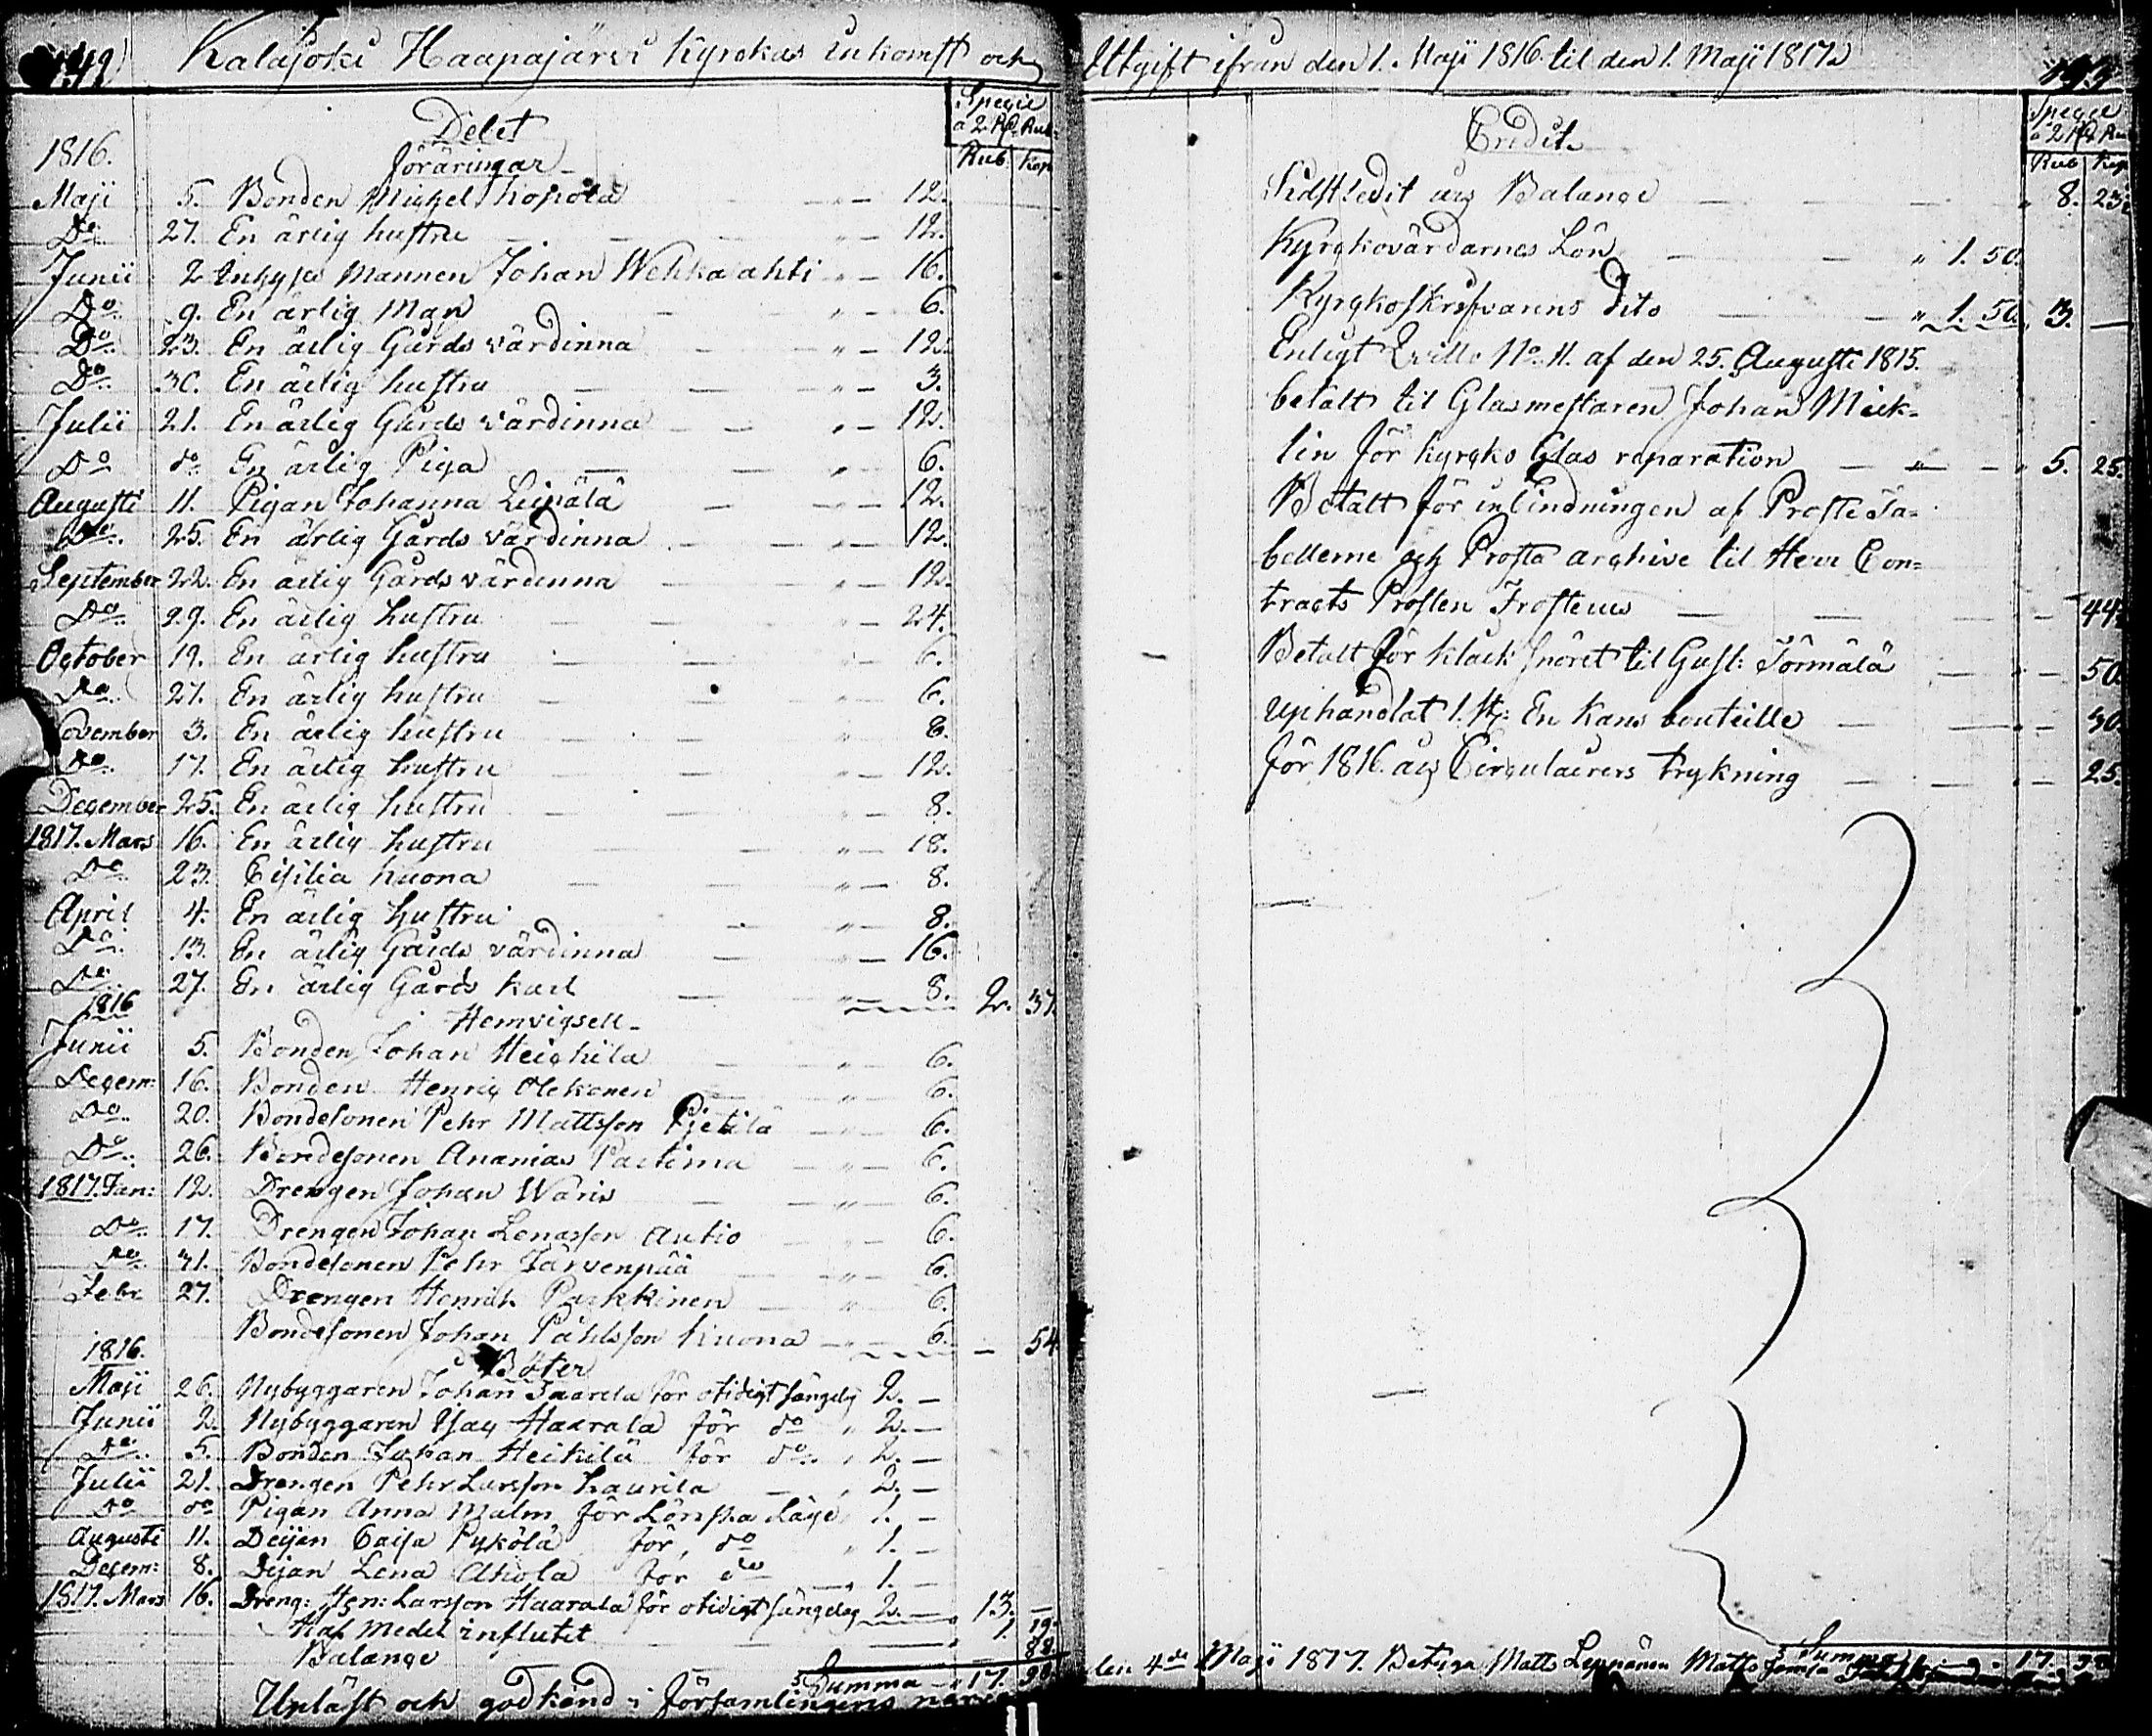 Kalajoki Haapajärvi Kyrckas inkomst och
Debet
Spegie
a 2 Rd. Rub.
Rub. Kop
1816. föräringar
Maji 5. Bonden Michel Kopola „ — 12.
Do. 27. En ärlig hustru „ — 12.
Junii 2 Inhyses Mannen Johan Wehkaahti „ — 16.
Do 9. En ärlig Man „ — 6.
Do. 23. En ärlig Gårds värdinna „ — 12.
Do. 30. En ärlig hustru „ — 3.
Julii 21. En ärlig Gårds värdinna „ — 12.
Do do. En ärlig Piga „ 6.
Augusti 11. Pigan Johanna Leipälä — 12.
Do. 25. En ärlig Gårds värdinna „ — 12.
September 22. En ärlig Gårds värdinna — 12.
Do. 29. En ärlig hustru „ — 24.
October 19. En ärlig hustru 6.
Do. 27. En ärlig hustru 6.
November 3. En ärlig hustru „ 8.
Do. 17. En ärlig hustru „ — 12.
December 25. En ärlig hustru „ — 8.
1817. Mars 16. En ärlig hustru „ — 18.
Do. 23. Cisilia Kuona „ — 8.
April 4. En ärlig hustru „ — 8.
Do. 13. En ärlig Gårds värdinna „ — 16.
Do. 27. En ärlig Gårds karl „ — 8. 2. 37.
1816 Hemvigsell
Junii 5. Bonden Johan Heickilä „ 6.
Decem: 16. Bonden Henric Olckonen „ 6.
Do. 20. Bondesonen Pehr Mattsson Pietilä — „ — 6.
Do. 26. Bondesonen Ananias — „ — 6.
1817. Jan: 12. Drengen Johan Waris „ — 6.
Do. 17. Drengen Johan Autio 6.
Do. 31. Bondesonen Pehr Järvenpää „ — 6.
Febr 27. Drengen Henrik Parkkinen „ 6.
Bondesonen Johan Påhlsson Kuona — „ — 6. — 54
1816. Böter
Maji 26. Nybyggaren Johan Saarela för otidigt sängelag 2. —
Junii 2. Nybyggaren Isac Haarala för do „ 2. —
Do. 5. Bonden Johan Heickilä för do. „ 2. —
Julii 21. Drengen Pehr Larsson Laurila „ 2. —
Do do Pigan Anna Malm för Lönska Läge 1. —
Augusti 11. Deijan Caisa Pyköla för, do „ 1. —
Decem: 8. Dijan Lena Ahola för do „ 1. —
1817. Mars 16. Dreng: Hen: Larsson Haarala för otidigt sängelag 2. — „ 13. —
Håf Medel influtit 1. 19.
Balance 88
Summa — „ 17. 98.
Upläst och godkänd i församlingens
Utgift ifrån den 1. Maji 1816. til den 1. Maji 1817
Credit.
Spegie
a 2 Rd. Rub
Rub Kop
Sidstledit års Balance „ 8. 23
Kyrckovärdarnes Lön „ 1. 50.
Kyrckoskrifvarens Dito „ 1. 50. „ 3. —
Enligt Qvitto No. 11. af den 25. Augusti 1815.
betalt til Glasmestaren Johan Mick-
lin för kyrcko Glas reparation — „ — „ 5. 25.
Betalt för inbindningen af Proste Ta-
bellerne och Prosta archive til Herr Con-
tracts Prosten Frosterus — 44
Betalt för klåck snöret til Gust: Törmälä — 50
Uphandlat 1. st: En Kans bouteille — 30.
för 1816. års Circulairers tryckning — 25.
Summa „ 17.
den 4de Maji 1817. Betyga Matts Leppänen Matts